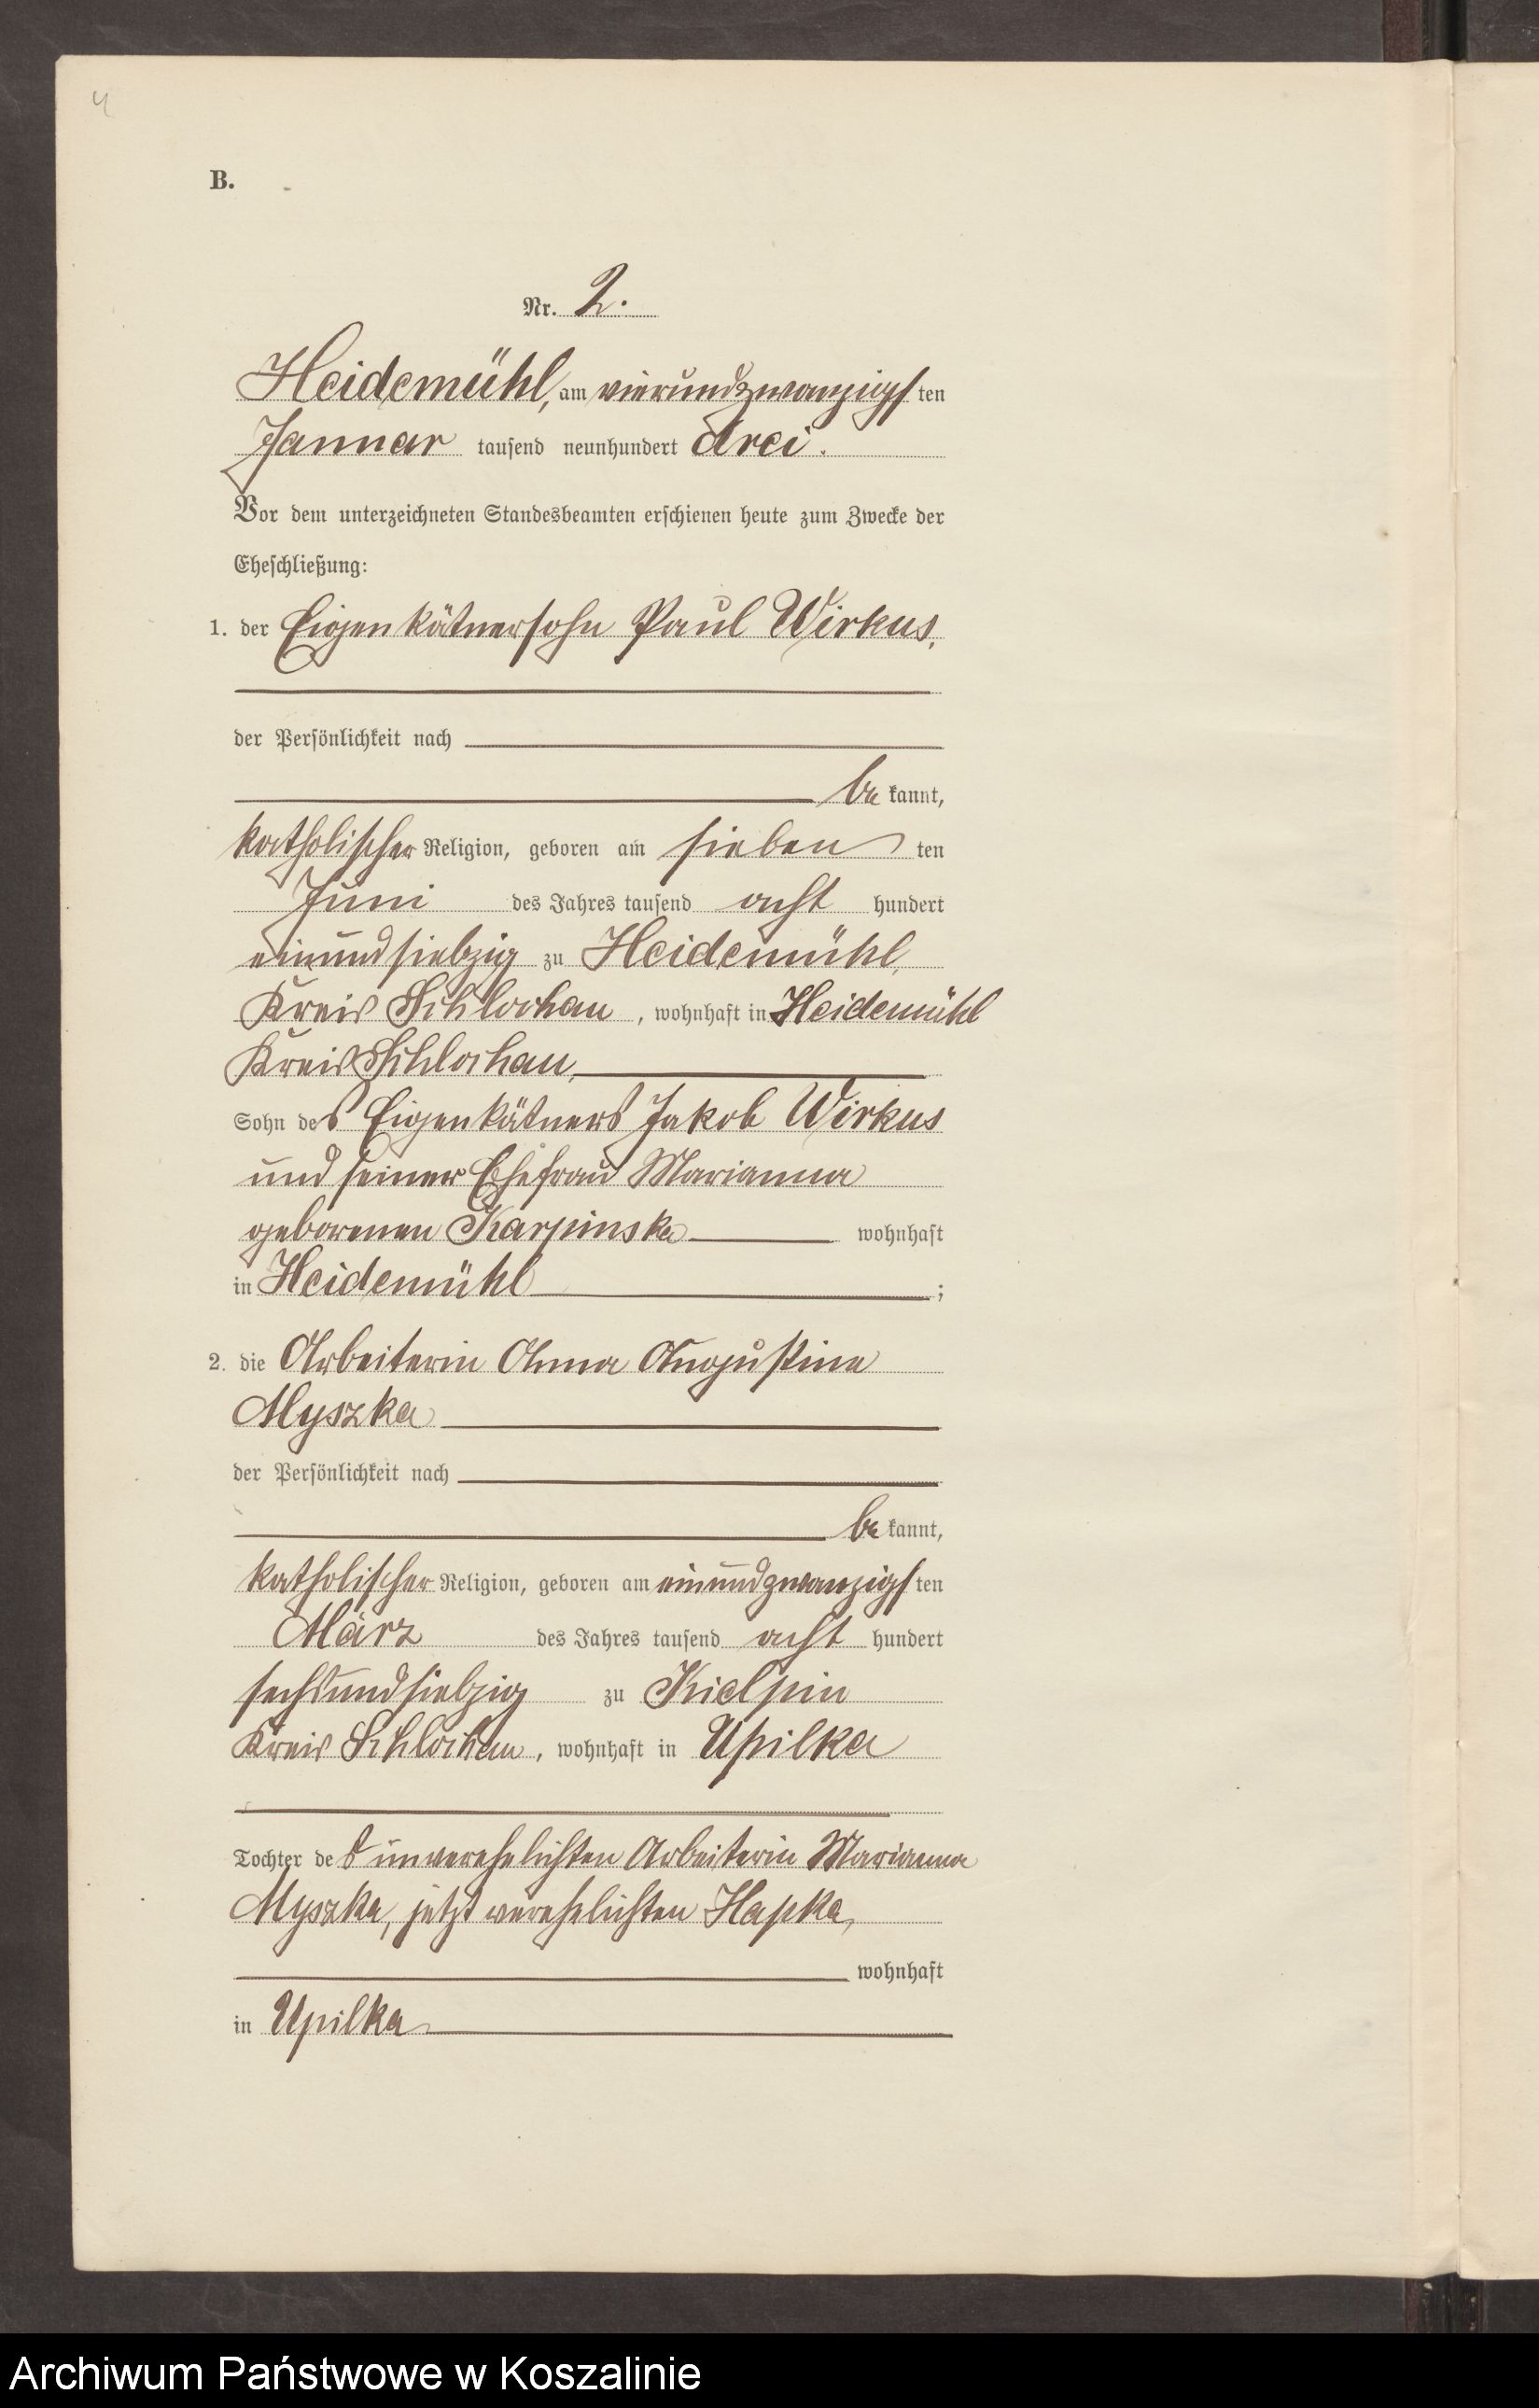 4
B.
Nr. 2.
Heidemühl, am vierundzwanzigsten
Januar tausend neunhundert drei.
Vor dem unterzeichneten Standesbeamten erschienen heute zum Zwecke der
Eheschließung:
1. der Eigenkätnersohn Paul Wirkus,
der Persönlichkeit nach
be kannt,
katholischer Religion, geboren am sieben ten
Juni des Jahres tausend acht hundert
einundsiebzig zu Heidemühl,
Kreis Schlochau, wohnhaft in Heidemühl
Kreis Schlochau,
Sohn des Eigenkätners Jakob Wirkus
und seiner Ehefrau Marianna
geborenen Karpinska wohnhaft
in Heidemühl ;
2. die Arbeiterin Anna Augustine
Myszka
der Persönlichkeit nach
be kannt,
katholischer Religion, geboren am einundzwanzigsten
März des Jahres tausend acht hundert
sechsundsiebzig zu Kielpin
Kreis Schlochau, wohnhaft in Upilka
Tochter der unverehelichten Arbeiterin Marianna
Myszka, jetzt verehelichten Hapka,
wohnhaft
in Upilka
Archiwum Państwowe w Koszalinie